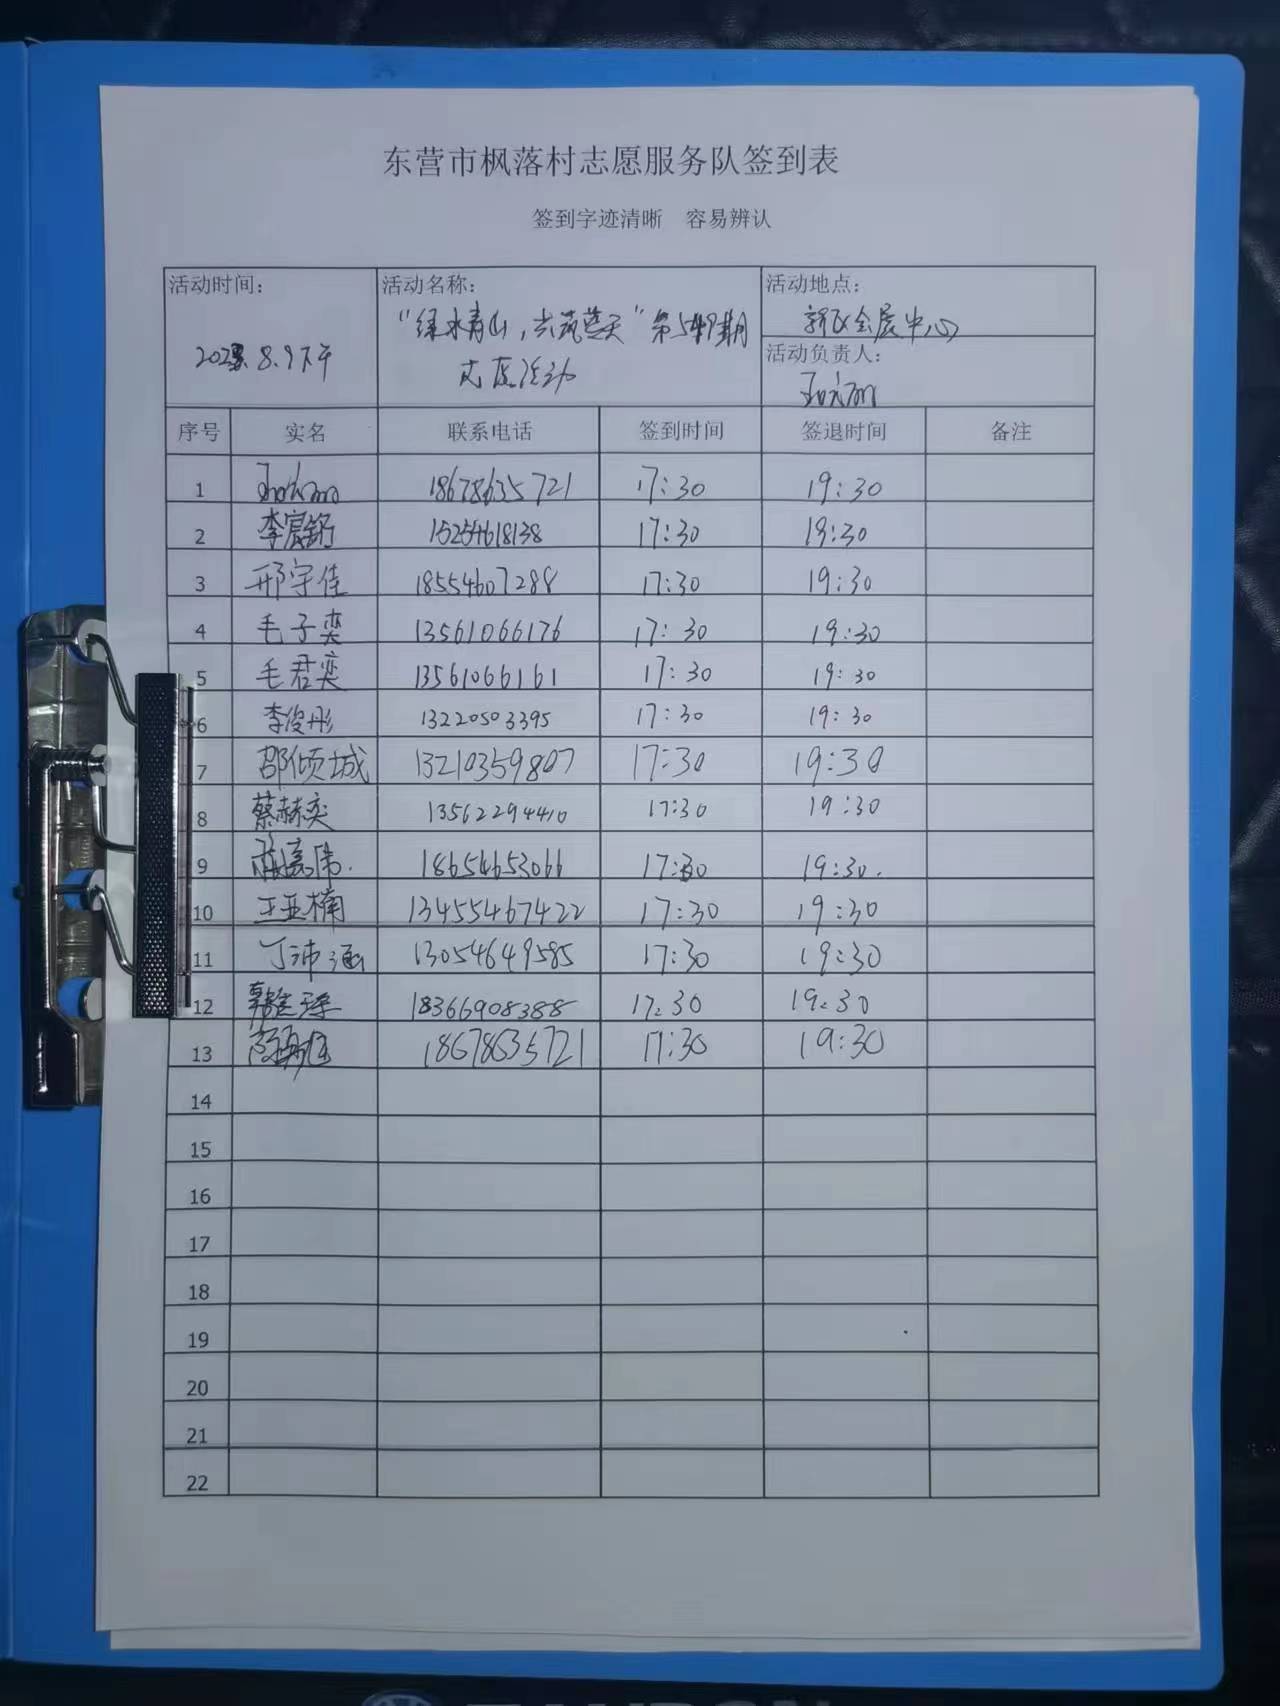 东营市枫落村志愿服务队签到表
签到字迹清晰 容易辨认
活动时间： 活动名称： 活动地点：
"绿水青山，共筑蓝天"第549期 新区会展中心
8.9下午 志愿活动 活动负责人：
序号 实名 联系电话 签到时间 签退时间 备注
1 18678635721 17:30 19:30
2 李宸铭 15254618138 17:30 19:30
3 邢宇佳 18554607288 17:30 19:30
4 毛子奕 13561066176 17:30 19:30
5 毛君奕 13561066161 17:30 19:30
6 李俊彤 13220503395 17:30 19:30
7 邵倾城 13210359807 17:30 19:30
8 蔡赫奕 13562294410 17:30 19:30
9 18654653066 17:30 19:30.
10 王亚楠 13455467422 17:30 19:30
11 丁沛涵 13054649585 17:30 19:30
12 18366908388 17:30 19:30
13 18678635721 17:30 19:30
14
15
16
17
18
19
20
21
22